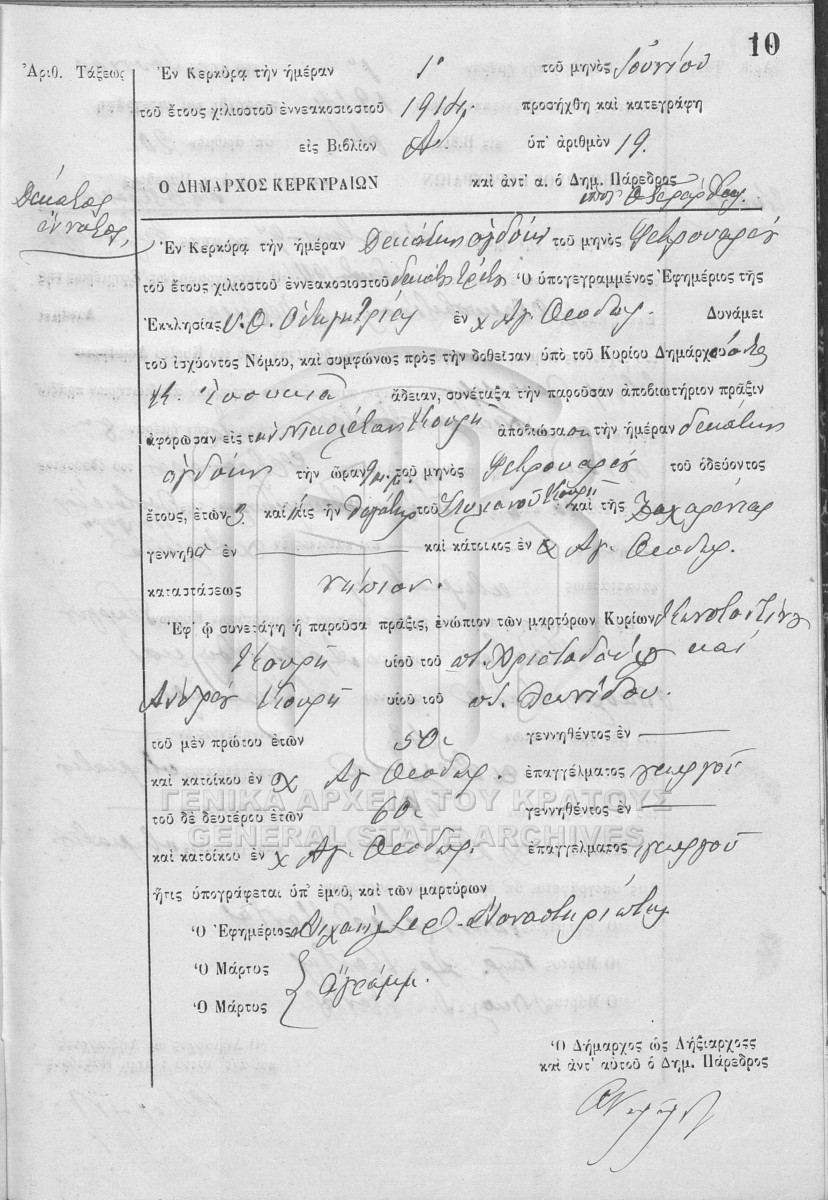 10
Ἀριθ. Τάξεως
Ἐν Κερκύρᾳ τὴν ἡμέραν 1ῃ τοῦ μηνὸς Ἰουνίου
τοῦ ἔτους χιλιοστοῦ ἐννεακοσιοστοῦ 1914 προσήχθη καὶ κατεγράφη
εἰς Βιβλίον Α. ὑπ' ἀριθμὸν 19.
Ο ΔΗΜΑΡΧΟΣ ΚΕΡΚΥΡΑΙΩΝ καὶ ἀντ' α. ὁ Δημ. Πάρεδρος
Δέκατος
ἔννατος,
Ἐν Κερκύρᾳ τὴν ἡμέραν Δεκάτην ὀγδόην τοῦ μηνὸς Φεβρουαρίου
τοῦ ἔτους χιλιοστοῦ ἐννεακοσιοστοῦ Ὁ ὑπογεγραμμένος Ἐφημέριος τῆς
Ἐκκλησίας Υ. Θ. Ὁδηγητρίας ἐν χ Ἁγ. Θεοδώρ. Δυνάμει
τοῦ ἰσχύοντος Νόμου, καὶ συμφώνως πρὸς τὴν δοθεῖσαν ὑπὸ τοῦ Κυρίου Δημάρχου
ἄδειαν, συνέταξα τὴν παροῦσαν ἀποβιωτήριον πρᾶξιν
ἀφορῶσαν εἰς τὴν ἀποβιώσασαν τὴν ἡμέραν δεκάτην
ὀγδόην τὴν ὥραν τοῦ μηνὸς Φεβρουαρίου τοῦ ὁδεύοντος
ἔτους, ἐτῶν 3 καὶ θυγάτηρ τοῦ Στυλιανοῦ καὶ τῆς Ζαχαρένιας
γεννηθ ἐν καὶ κάτοικος ἐν χ Ἁγ. Θεοδώρ.
καταστάσεως νήπιον.
Ἐφ' ᾧ συνετάγη ἡ παροῦσα πρᾶξις, ἐνώπιον τῶν μαρτύρων Κυρίων Κωνσταντίνου
υἱοῦ τοῦ ποτ. Χριστοδούλου καὶ
Ἀνδρέου υἱοῦ τοῦ ποτ. Λεωνίδου.
τοῦ μὲν πρώτου ἐτῶν 50. γεννηθέντος ἐν
καὶ κατοίκου ἐν χ Ἁγ. Θεοδώρ. ἐπαγγέλματος γεωργοῦ
τοῦ δὲ δευτέρου ἐτῶν 60. γεννηθέντος ἐν
καὶ κατοίκου ἐν χ Ἁγ. Θεοδώρ. ἐπαγγέλματος γεωργοῦ
ἥτις ὑπογράφεται ὑπ' ἐμοῦ, καὶ τῶν μαρτύρων
Ὁ Ἐφημέριος Μιχαὴλ Μοναστηριώτης
Ὁ Μάρτυς
Ὁ Μάρτυς
ἀγράμμ.
Ὁ Δήμαρχος ὡς Ληξίαρχοςς
καὶ ἀντ' αὐτοῦ ὁ Δημ. Πάρεδρος
ΓΕΝΙΚΑ ΑΡΧΕΙΑ ΤΟΥ ΚΡΑΤΟΥΣ
GENERAL STATE ARCHIVES